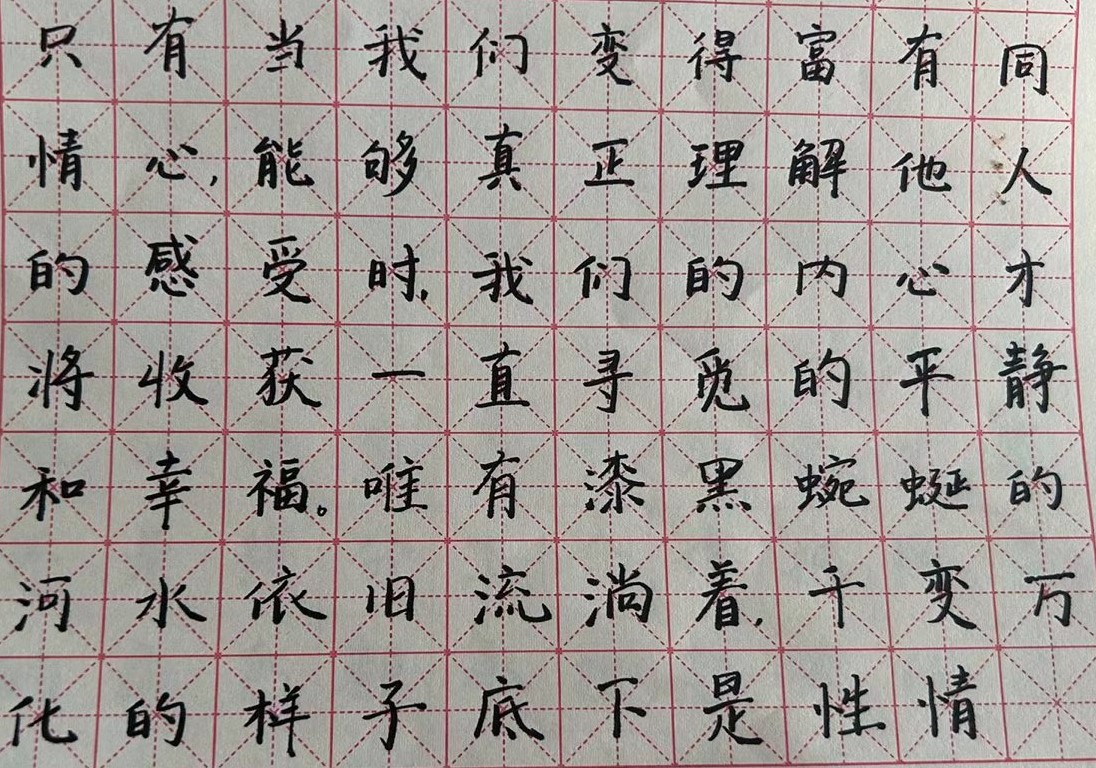 只有当我们变得富有同
情心,能够真正理解他人
的感受时,我们的内心才
将收获一直寻觅的平静
和幸福。唯有漆黑蜿蜒的
河水依旧流淌着,千变万
化的样子底下是性情